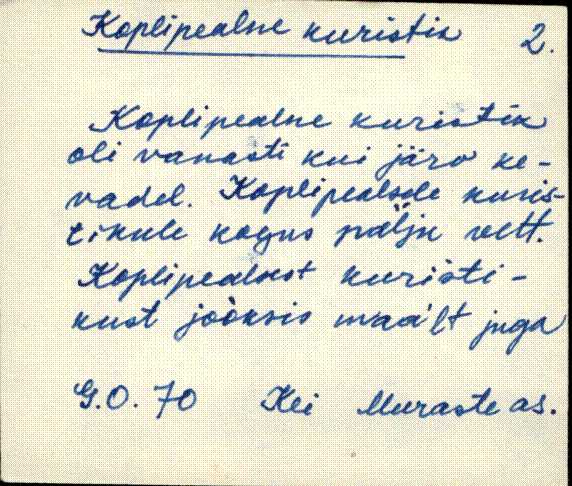 Koplipealne kuristik 2.
Koplipealne kuristik
oli vanasti kui järv ke-
vadel. Koplipealsele kuris-
tikule kogus palju vett.
Koplipealsest kuristi-
kust jooksis maa'lt juga
G.O. 70 Kei Muraste as.